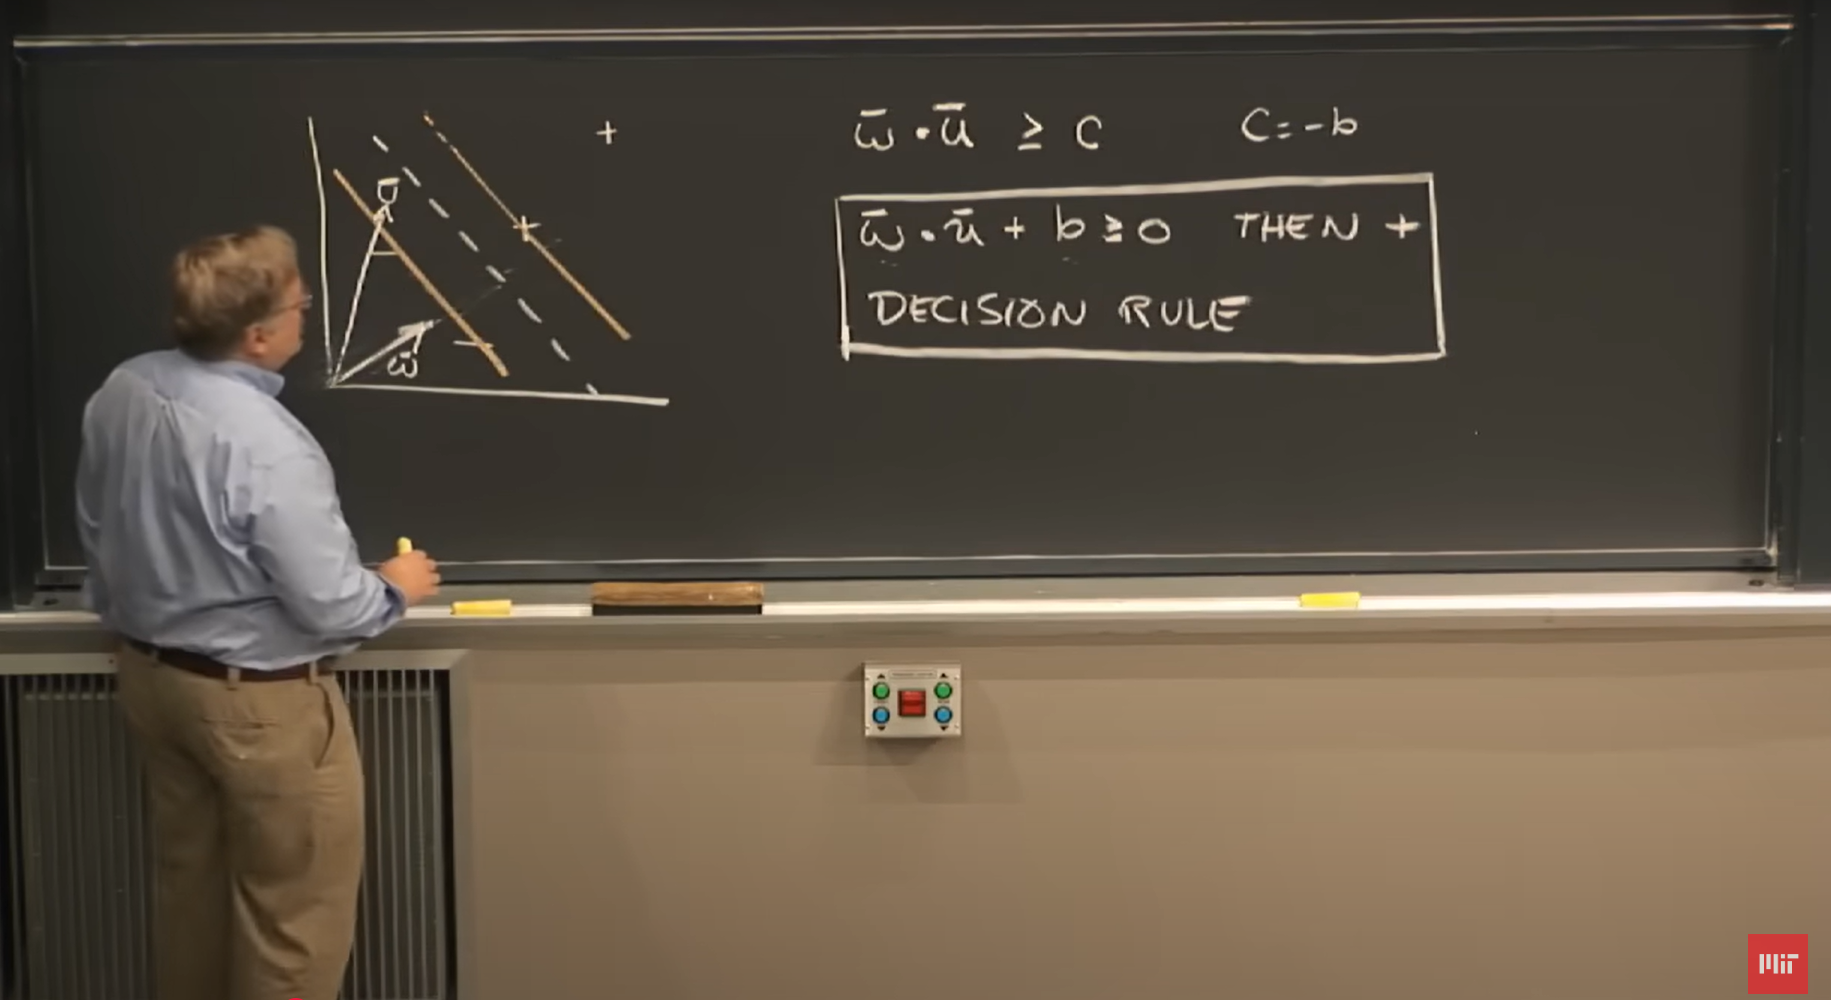 +
ū
+
−
−
ω̄
ω̄ · ū ≥ C
C = -b
ω̄ · ū + b ≥ 0 THEN +
DECISION RULE
MIT